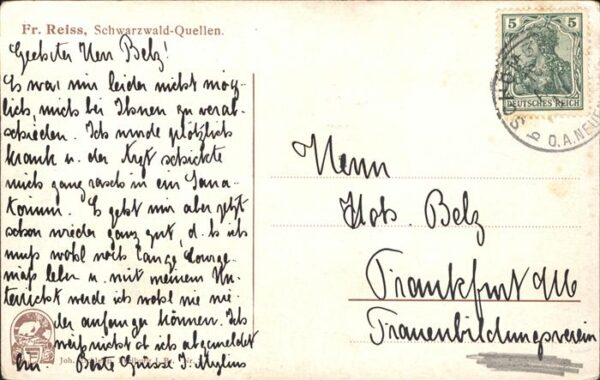 Fr. Reiss, Schwarzwald-Quellen.
Geehrter Herr Belz!
Es war mir leider nicht mög-
lich, mich bei Ihnen zu verab-
schieden. Ich wurde plötzlich
krank u. der Arzt schickte
mich ganz rasch in ein Sana-
torium. Es geht mir aber jetzt
schon wieder ganz gut, d. h. ich
muß wohl noch lange
leben u. mit meinem Un-
terricht werde ich wohl nie wie-
der anfangen können. Ich
weiß nicht ob ich abgemeldet
bin. Beste Grüsse J. Mylius
5 5
DEUTSCHES REICH
b O.A.NEUEN
Herrn
Hch. Belz
Frankfurt a/M
Frauenbildungsverein
Joh.